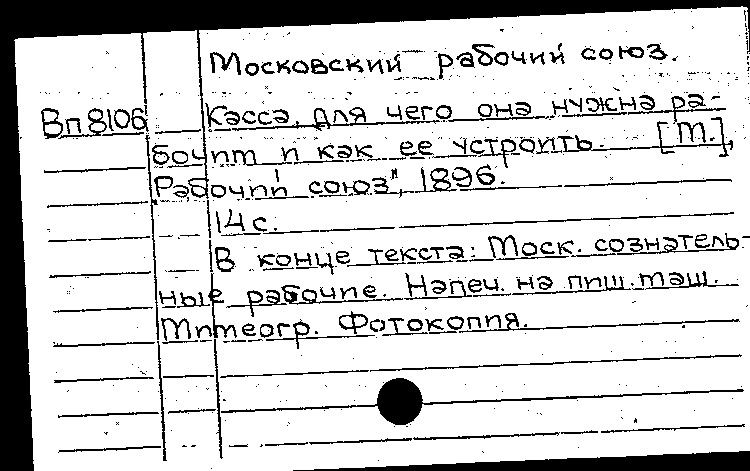 Московский рабочий союз.
Вп 8106 Касса, для чего она нужна ра-
бочим и как ее устроить. [М.],
"Рабочий союз", 1896.
14 с.
В конце текста: Моск. сознатель-
ные рабочие. Напеч. на пиш. маш.
Митеогр. Фотокопия.